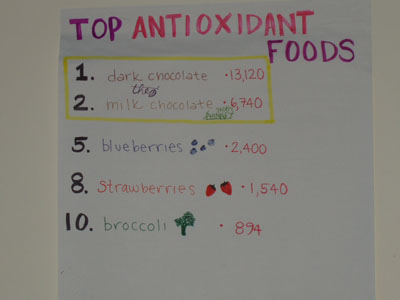 TOP ANTIOXIDANT
FOODS
1. dark chocolate • 13,120
2. milk chocolate • 6,740
5. blueberries • 2,400
8. strawberries • 1,540
10. broccoli • 894